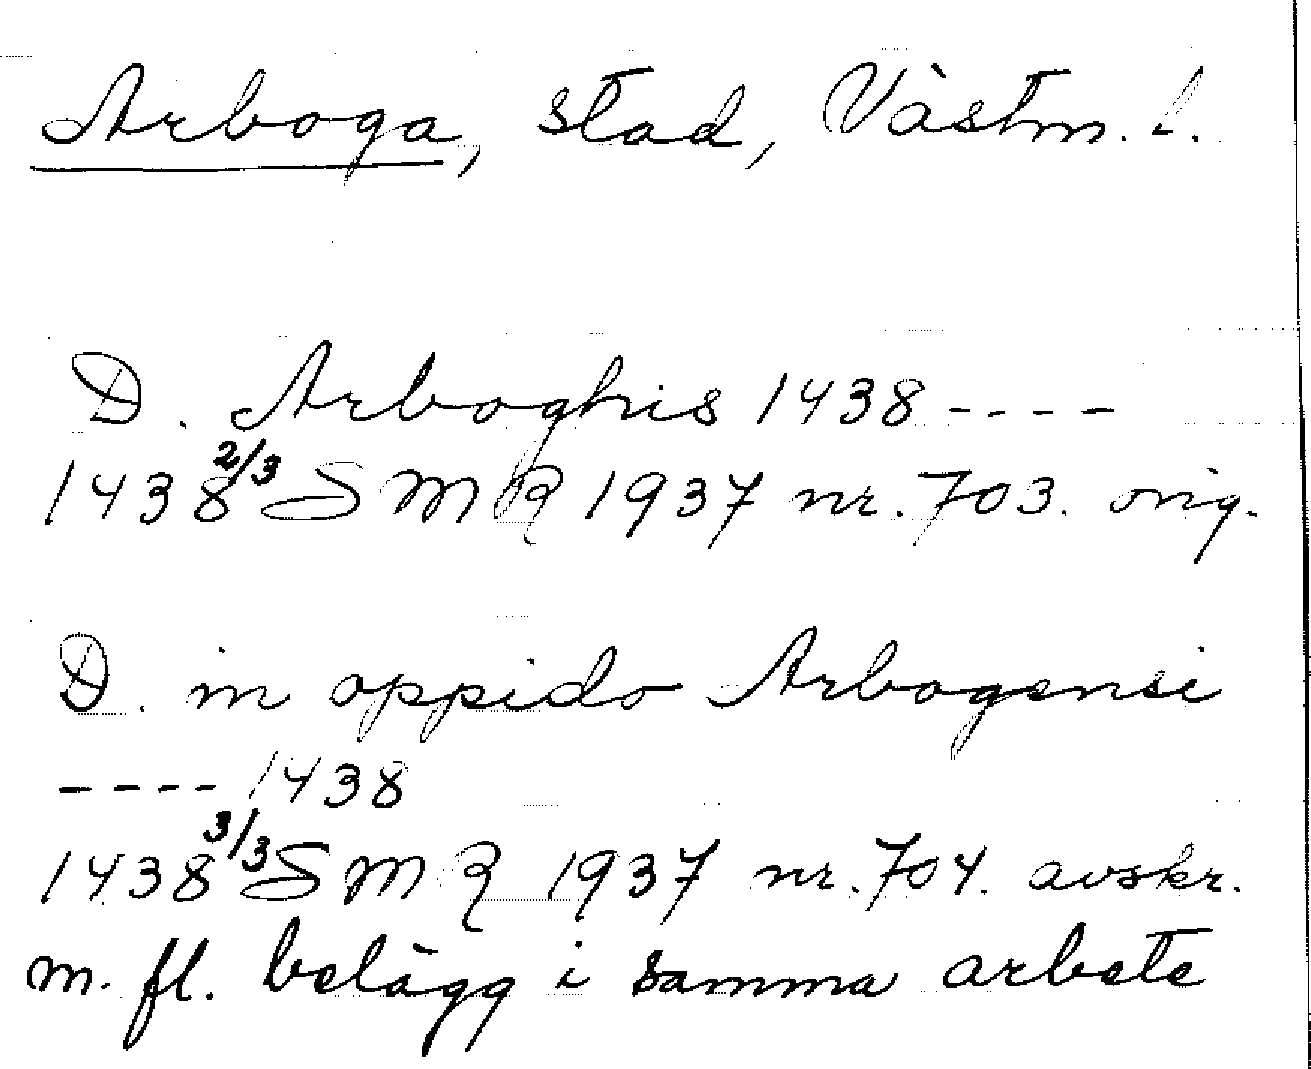 Arboga, stad, Västm. l.
D. Arboghis 1438 - - - -
1438 2/3 SMR 1937 nr. 703. orig.
D. in oppido Arbogensi
- - - - 1438
1438 3/3 SMR 1937 nr. 704. avskr.
m. fl. belägg i samma arbete